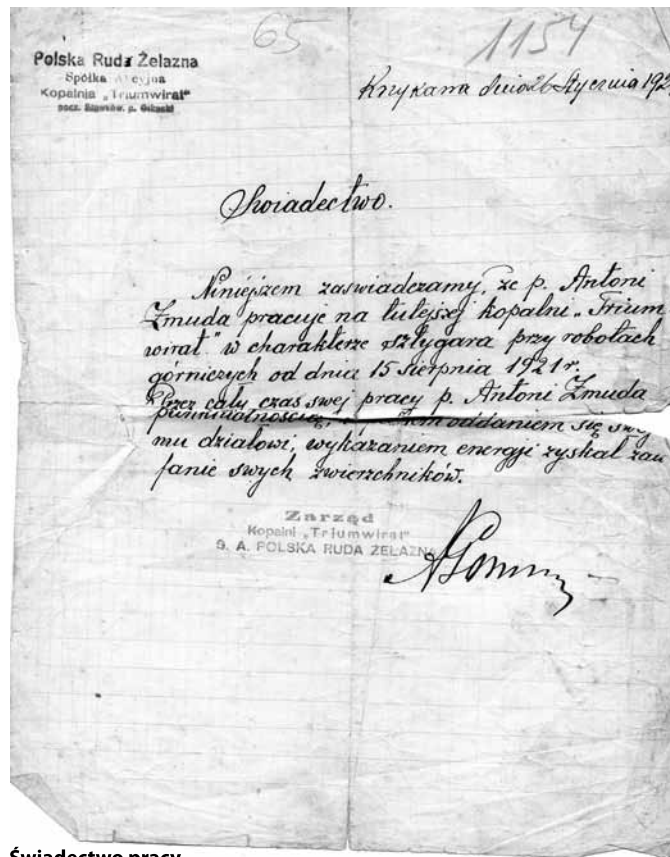 65
1154
Polska Ruda Żelazna
Spółka Akcyjna
Kopalnia „Triumwirat"
Krzykawa dnia 26 Stycznia 192
Swiadectwo.
Niniejszem zaswiadczamy, ze p. Antoni
Zmuda pracuje na tutejszej kopalni „Trium
wirat" w charakterze sztygara przy robotach
górniczych od dnia 15 sierpnia 1921 r.
Przez cały czas swej pracy p. Antoni Zmuda
punktualnością, oddaniem się swe
mu działowi, wykazaniem energji zyskał zau
fanie swych zwierzchników.
Zarząd
Kopalni „Triumwirat"
S. A. POLSKA RUDA ŻELAZNA
Świadectwo pracy